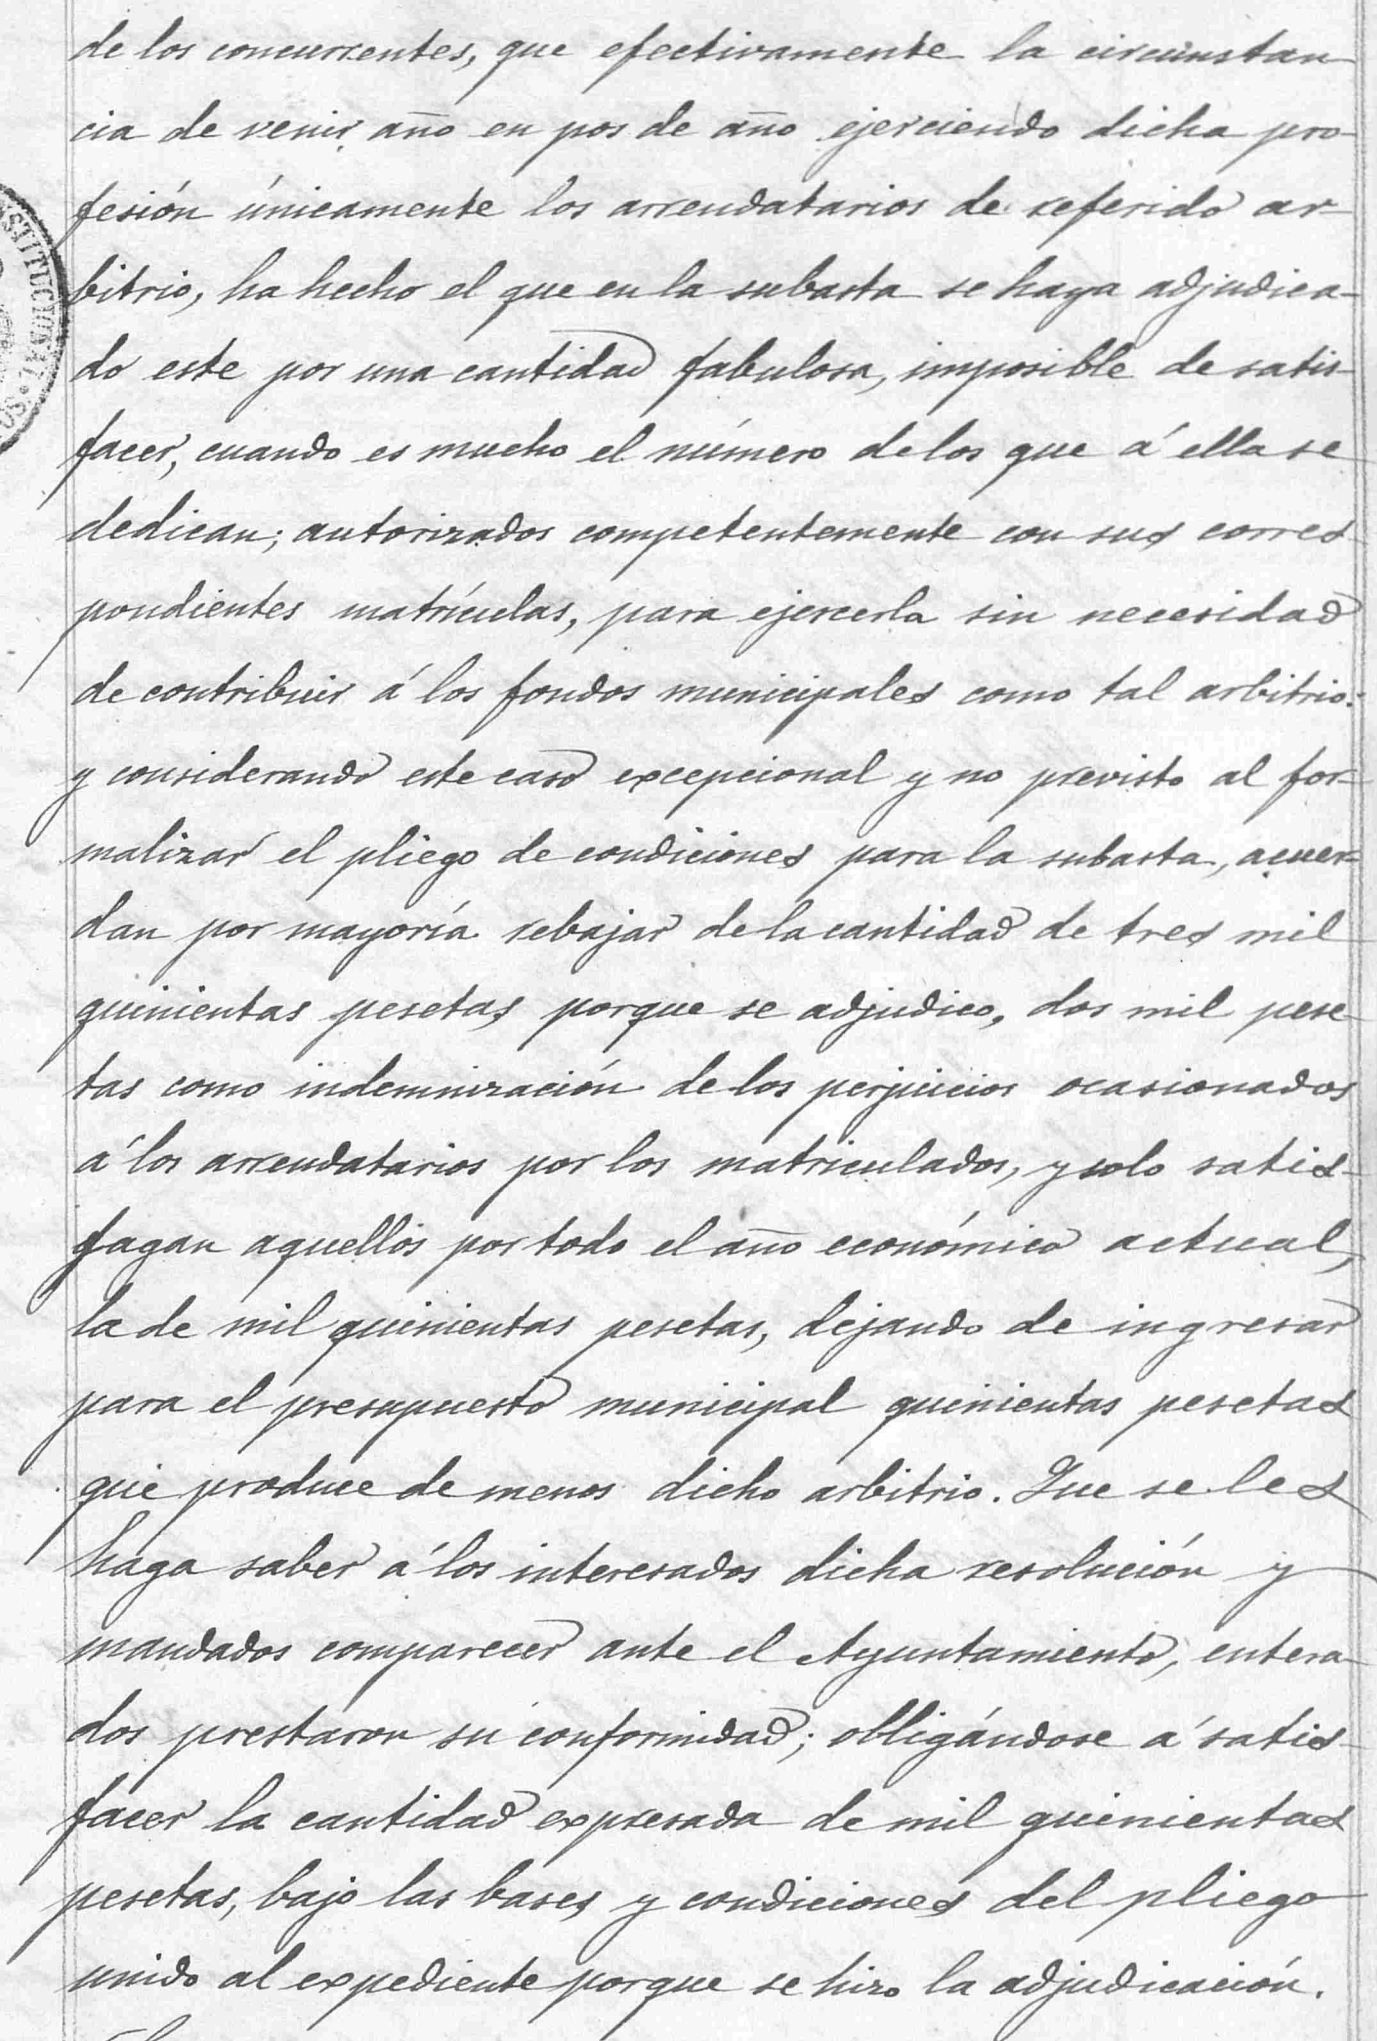 de los concurrentes, que efectivamente la circunstan
cia de venir año en pos de año ejerciendo dicha pro-
fesión únicamente los arrendatarios de referido ar-
bitrio, ha hecho el que en la subasta se haya adjudica-
do este por una cantidad fabulosa, imposible de satis-
facer, cuando es mucho el número de los que á ella se
dedican; autorizados competentemente con sus corres-
pondientes matrículas, para ejercerla sin necesidad
de contribuir á los fondos municipales como tal arbitrio:
y considerando este caso excepcional y no previsto al for-
malizar el pliego de condiciones para la subasta, acuer-
dan por mayoría rebajar de la cantidad de tres mil
quinientas pesetas porque se adjudico, dos mil pese
tas como indemnización de los perjuicios ocasionados
á los arrendatarios por los matriculados, y solo satis-
fagan aquellos por todo el año económico actual,
la de mil quinientas pesetas, dejando de ingresar
para el presupuesto municipal quinientas pesetas
que produce de menos dicho arbitrio. Que se les
haga saber á los interesados dicha resolución y
mandados comparecer ante el Ayuntamiento, entera-
dos prestaron su conformidad; obligándose á satis-
facer la cantidad expresada de mil quinientas
pesetas, bajo las bases y condiciones del pliego
unido al expediente porque se hizo la adjudicación.